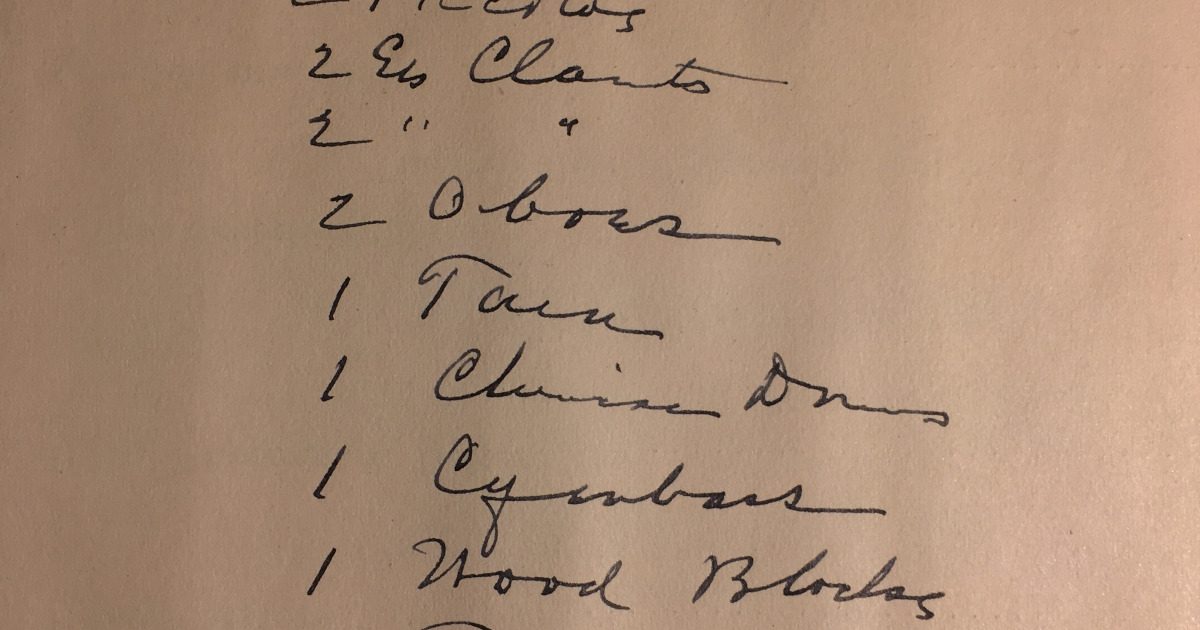 2 Piccolos
2 Eb Clarits
2 " "
2 Oboes
1 Tam
1 Chinese Drums
1 Cymbals
1 Wood Blocks